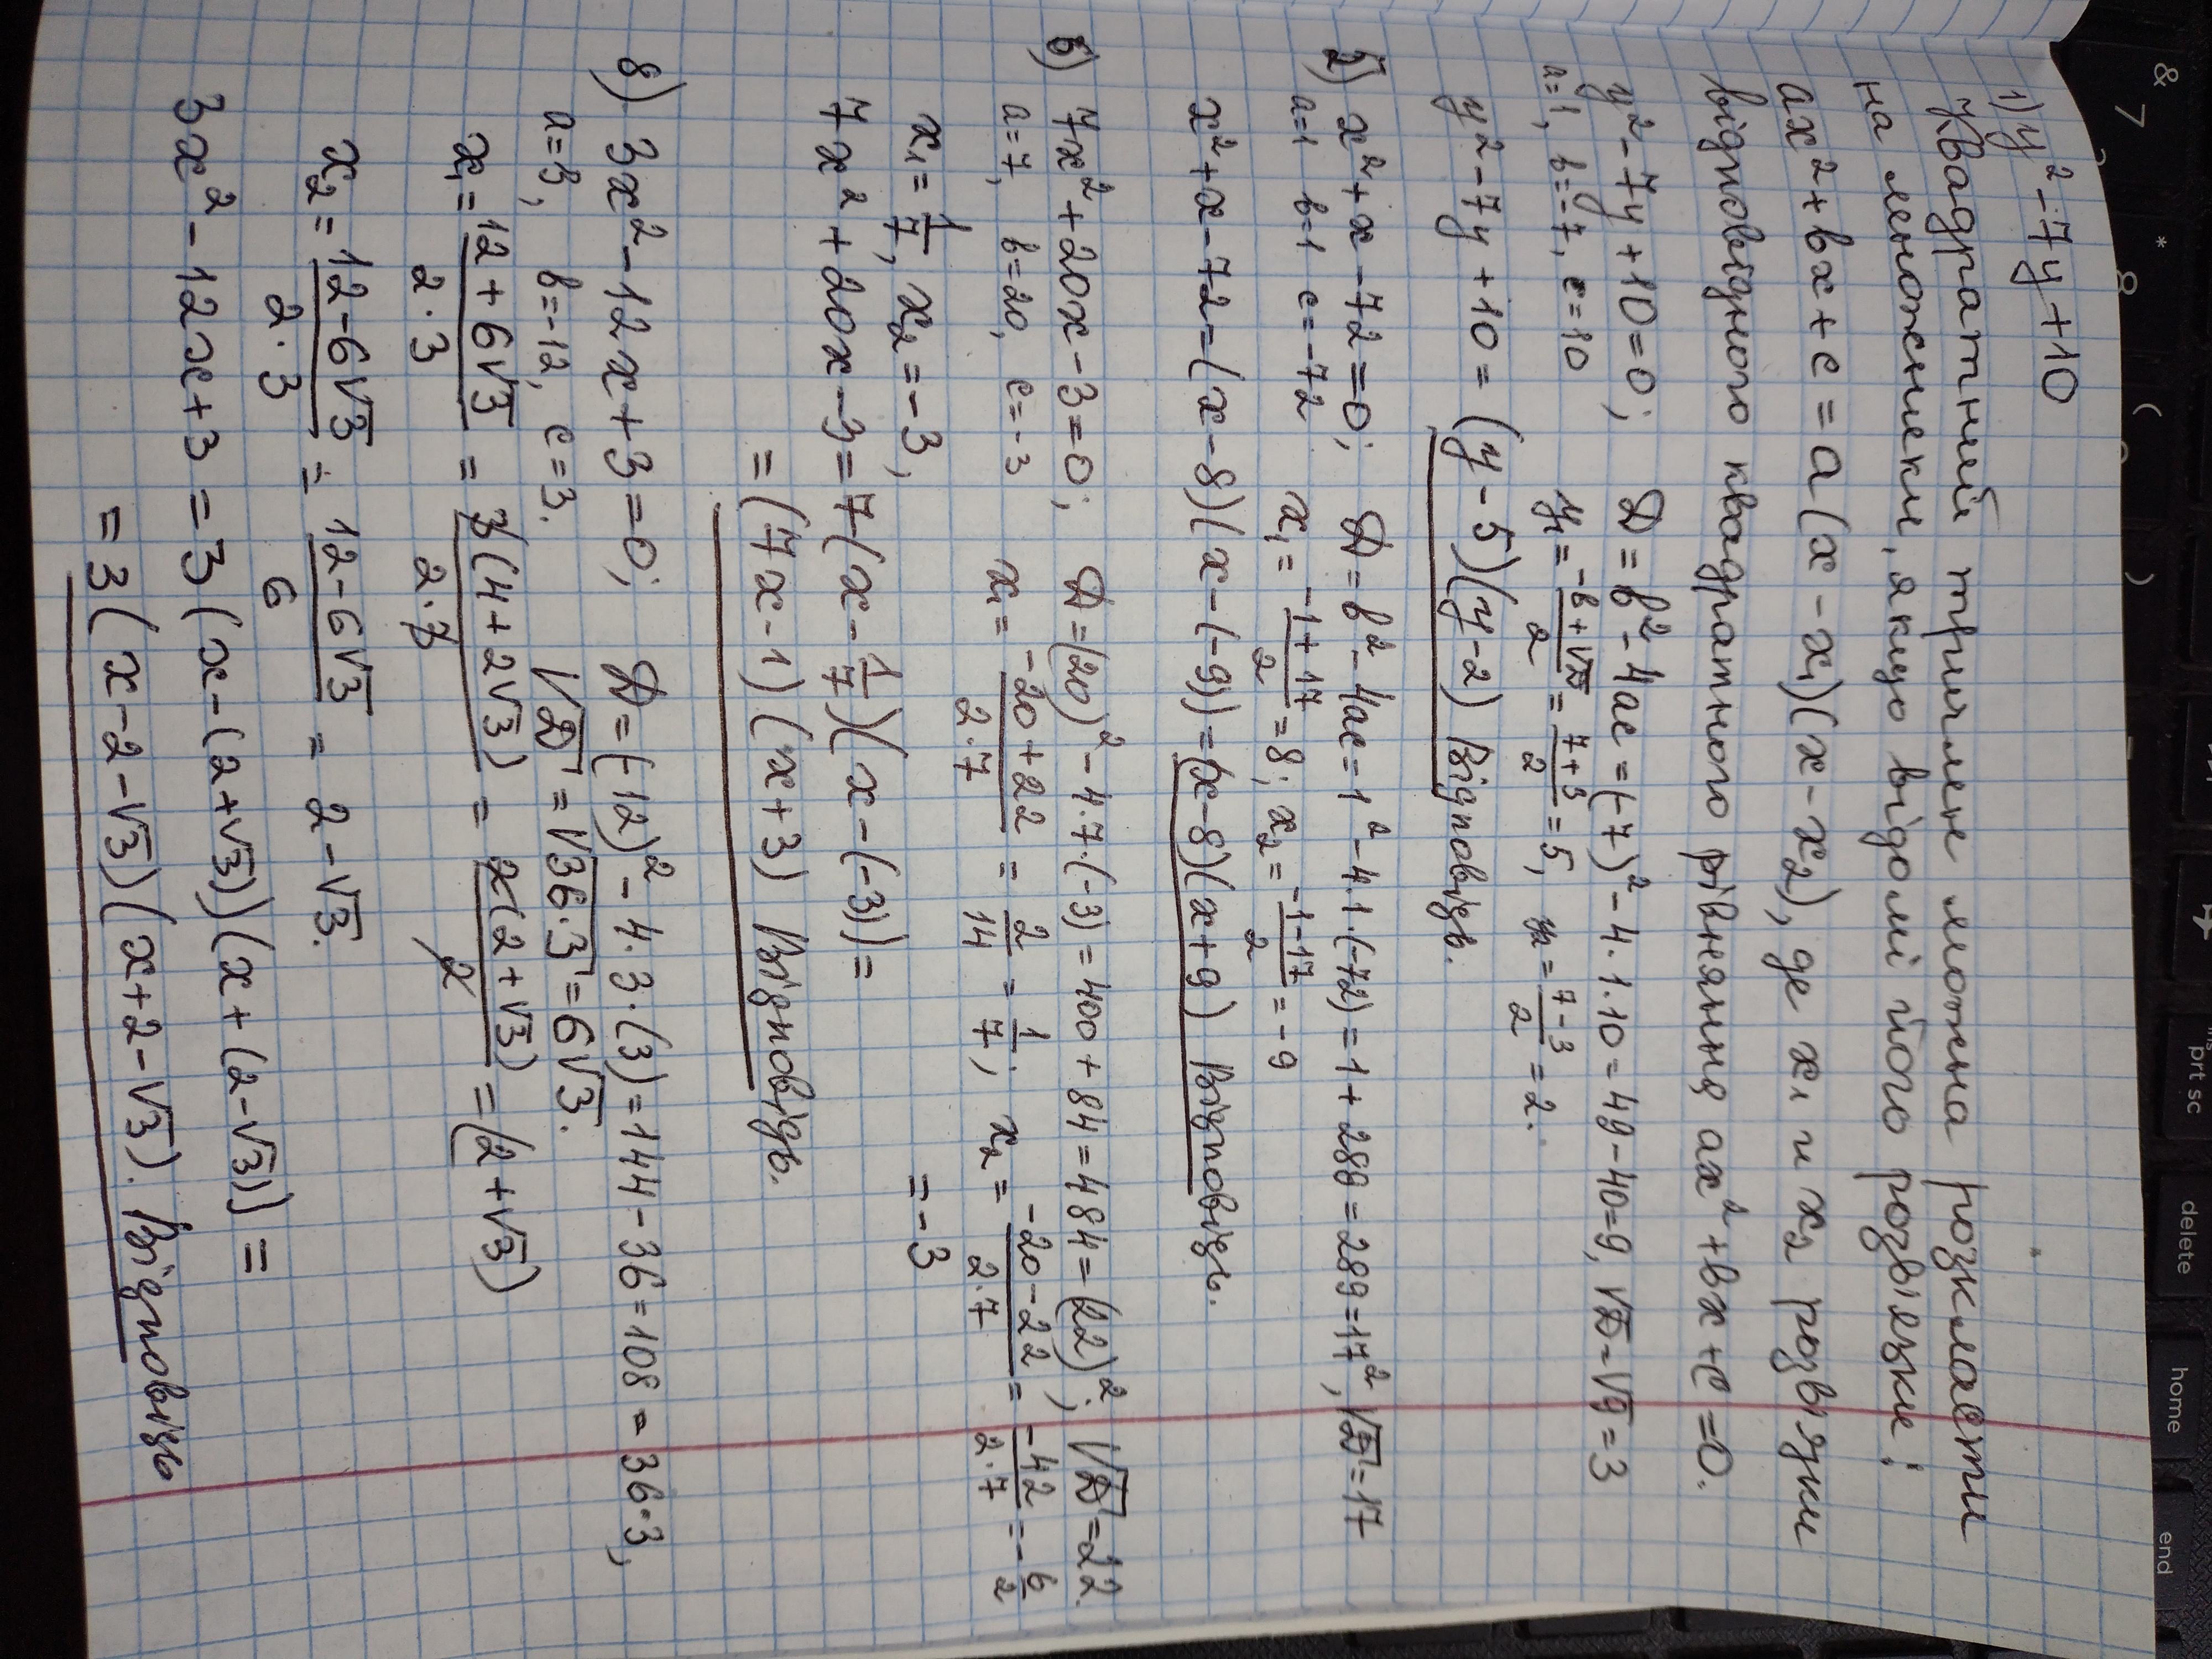 1) y² - 7y + 10
Квадратний тричлен можна розкласти
на множники, якщо відомі його розв'язки:
ax² + bx + c = a(x - x₁)(x - x₂), де x₁ и x₂ розв'язки
відповідного квадратного рівняння ax² + bx + c = 0.
y² - 7y + 10 = 0; D = b² - 4ac = (-7)² - 4·1·10 = 49 - 40 = 9, √D = √9 = 3
a=1, b=-7, c=10 y₁ = (-b+√D)/2 = (7+3)/2 = 5, y₂ = (7-3)/2 = 2.
y² - 7y + 10 = (y - 5)(y - 2) Відповідь.
2) x² + x - 72 = 0; D = b² - 4ac = 1² - 4·1·(-72) = 1 + 288 = 289 = 17², √D = 17
a=1 b=1 c=-72 x₁ = (-1+17)/2 = 8; x₂ = (-1-17)/2 = -9
x² + x - 72 = (x - 8)(x - (-9)) = (x - 8)(x + 9) Відповідь.
6) 7x² + 20x - 3 = 0; D = (20)² - 4·7·(-3) = 400 + 84 = 484 = (22)²; √D = 22.
a=7, b=20, c=-3 x₁ = (-20+22)/(2·7) = 2/14 = 1/7; x₂ = (-20-22)/(2·7) = -42/(2·7) = -6/2
x₁ = 1/7, x₂ = -3, = -3
7x² + 20x - 3 = 7(x - 1/7)(x - (-3)) =
= (7x - 1)(x + 3) Відповідь.
8) 3x² - 12x + 3 = 0; D = (-12)² - 4·3·(3) = 144 - 36 = 108 = 36·3,
a=3, b=-12, c=3. √D = √36·3 = 6√3.
x₁ = (12 + 6√3)/(2·3) = 3(4 + 2√3)/(2·3) = 2(2 + √3)/2 = (2 + √3)
x₂ = (12 - 6√3)/(2·3) = (12 - 6√3)/6 = 2 - √3.
3x² - 12x + 3 = 3(x - (2 + √3))(x + (2 - √3)) =
= 3(x - 2 - √3)(x + 2 - √3). Відповідь
& 7
* 8
( 
)
prt sc
delete
home
end